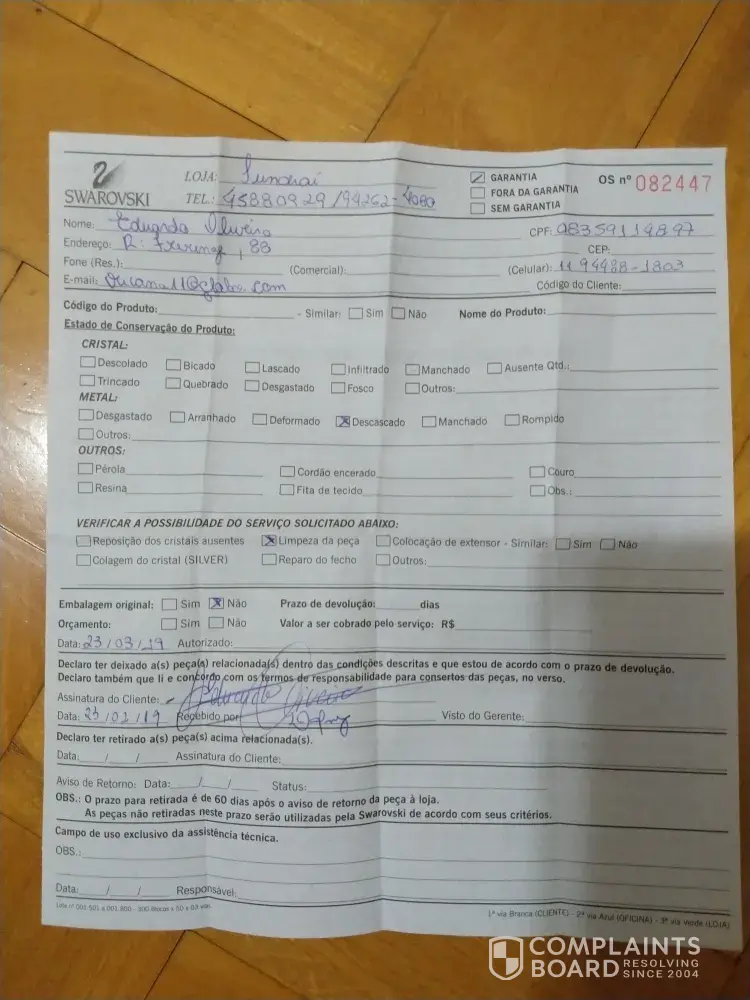 SWAROVSKI
LOJA: Jundiaí
TEL.: 45880929 / 94262-4080
GARANTIA
FORA DA GARANTIA
SEM GARANTIA
OS nº 082447
Nome: Eduardo Oliveira
CPF: 08359114897
Endereço: R: , 88
CEP:
Fone (Res.): (Comercial): (Celular): 11 94488-1803
E-mail: Código do Cliente:
Código do Produto: - Similar: Sim Não Nome do Produto:
Estado de Conservação do Produto:
CRISTAL:
Descolado Bicado Lascado Infiltrado Manchado Ausente Qtd.:
Trincado Quebrado Desgastado Fosco Outros:
METAL:
Desgastado Arranhado Deformado Descascado Manchado Rompido
Outros:
OUTROS:
Pérola Cordão encerado Couro
Resina Fita de tecido Obs.:
VERIFICAR A POSSIBILIDADE DO SERVIÇO SOLICITADO ABAIXO:
Reposição dos cristais ausentes Limpeza da peça Colocação de extensor - Similar: Sim Não
Colagem do cristal (SILVER) Reparo do fecho Outros:
Embalagem original: Sim Não Prazo de devolução: dias
Orçamento: Sim Não Valor a ser cobrado pelo serviço: R$
Data: 23/03/19 Autorizado:
Declaro ter deixado a(s) peça(s) relacionada(s) dentro das condições descritas e que estou de acordo com o prazo de devolução.
Declaro também que li e concordo com os termos de responsabilidade para consertos das peças, no verso.
Assinatura do Cliente:
Data: 23/02/19 Recebido por: Visto do Gerente:
Declaro ter retirado a(s) peça(s) acima relacionada(s).
Data: / / Assinatura do Cliente:
Aviso de Retorno: Data: / / Status:
OBS.: O prazo para retirada é de 60 dias após o aviso de retorno da peça à loja.
As peças não retiradas neste prazo serão utilizadas pela Swarovski de acordo com seus critérios.
Campo de uso exclusivo da assistência técnica.
OBS.:
Data: / / Responsável:
1ª via Branca (CLIENTE) - 2ª via Azul (OFICINA) - 3ª via Verde (LOJA)
COMPLAINTS
BOARD RESOLVING SINCE 2004